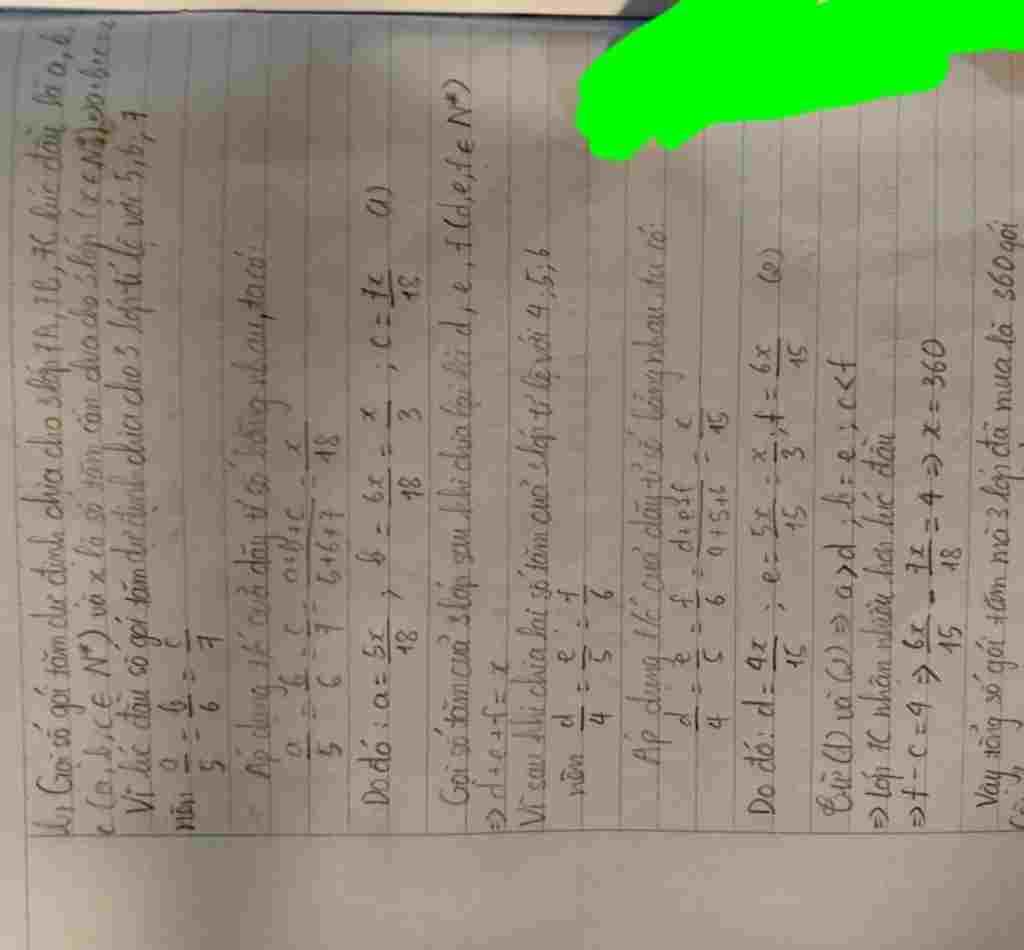 b, Gọi số gói tăm dự định chia cho 3 lớp 7A, 7B, 7C lúc đầu là a, b,
c (a, b, c ∈ N*) và x là số tăm cần chia cho 3 lớp (x ∈ N*) => a+b+c=x
Vì lúc đầu số gói tăm dự định chia cho 3 lớp tỉ lệ với 5, 6, 7
nên a/5 = b/6 = c/7
Áp dụng t/c của dãy tỉ số bằng nhau, ta có:
a/5 = b/6 = c/7 = a+b+c/5+6+7 = x/18
Do đó: a = 5x/18 ; b = 6x/18 = x/3 ; c = 7x/18 (1)
Gọi số tăm của 3 lớp sau khi chia lại là d, e, f (d, e, f ∈ N*)
=> d+e+f = x
Vì sau khi chia lại số tăm của 3 lớp tỉ lệ với 4, 5, 6
nên d/4 = e/5 = f/6
Áp dụng t/c của dãy tỉ số bằng nhau, ta có:
d/4 = e/5 = f/6 = d+e+f/4+5+6 = x/15
Do đó: d = 4x/15 ; e = 5x/15 = x/3 ; f = 6x/15 (2)
Từ (1) và (2) => a>d ; b=e ; c<f
=> lớp 7C nhận nhiều hơn lúc đầu
=> f - c = 4 => 6x/15 - 7x/18 = 4 => x = 360
Vậy tổng số gói tăm mà 3 lớp đã mua là 360 gói